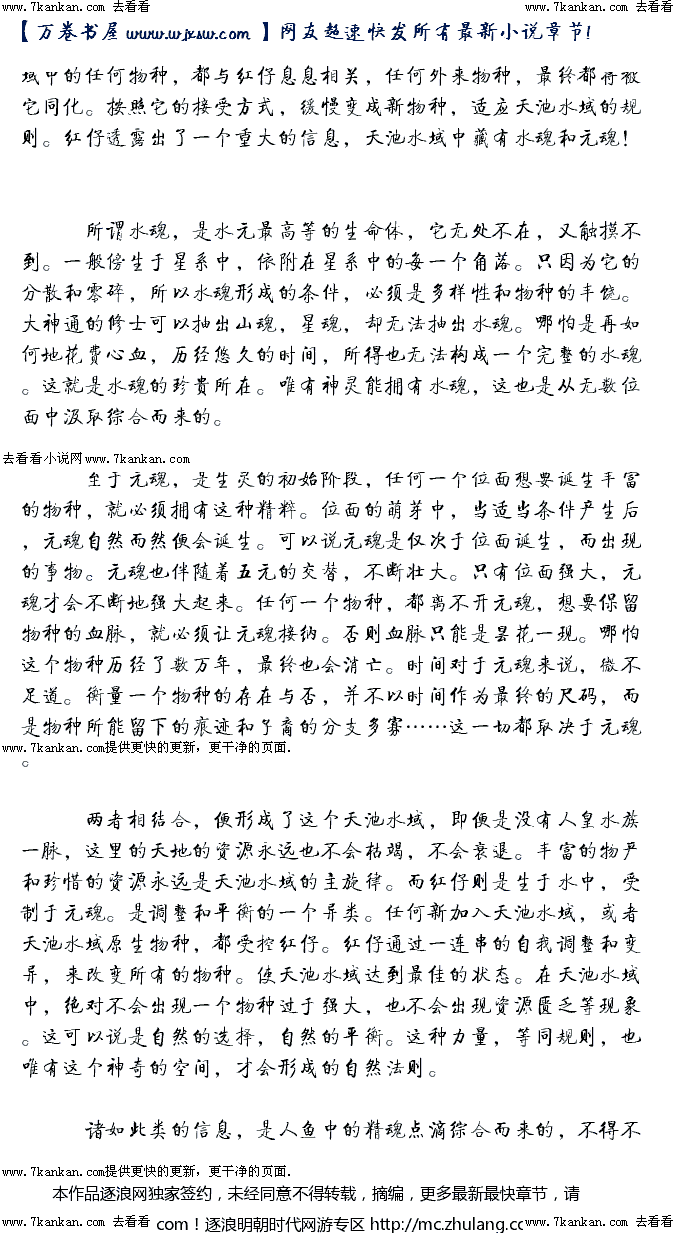 www.7kankan.com 去看看 www.7kankan.com 去看看
【万卷书屋 www.wjxsw.com 】网友超速快发所有最新小说章节!
域中的任何物种，都与红仔息息相关，任何外来物种，最终都将被
它同化。按照它的接受方式，缓慢变成新物种，适应天池水域的规
则。红仔透露出了一个重大的信息，天池水域中藏有水魂和元魂!
所谓水魂，是水元最高等的生命体，它无处不在，又触摸不
到。一般傍生于星系中，依附在星系中的每一个角落。只因为它的
分散和零碎，所以水魂形成的条件，必须是多样性和物种的丰饶。
大神通的修士可以抽出山魂，星魂，却无法抽出水魂。哪怕是再如
何地花費心血，历经悠久的时间，所得也无法构成一个完整的水魂
。这就是水魂的珍貴所在。唯有神灵能拥有水魂，这也是从无数位
面中汲取综合而来的。
去看看小说网www.7kankan.com
至于元魂，是生灵的初始阶段，任何一个位面想要诞生丰富
的物种，就必须拥有这种精粹。位面的萌芽中，当适当条件产生后
，元魂自然而然便会诞生。可以说元魂是仅次于位面诞生，而出现
的事物。元魂也伴随着五元的交替，不断壮大。只有位面强大，元
魂才会不断地强大起来。任何一个物种，都离不开元魂，想要保留
物种的血脉，就必须让元魂接纳。否则血脉只能是昙花一现。哪怕
这个物种历经了数万年，最终也会消亡。时间对于元魂来说，微不
足道。衡量一个物种的存在与否，并不以时间作为最终的尺码，而
是物种所能留下的痕迹和子裔的分支多寡……这一切都取决于元魂
www.7kankan.com提供更快的更新，更干净的页面.
。
两者相结合，便形成了这个天池水域，即便是没有人皇水族
一脉，这里的天地的资源永远也不会枯竭，不会衰退。丰富的物产
和珍惜的资源永远是天池水域的主旋律。而红仔则是生于水中，受
制于元魂。是调整和平衡的一个异类。任何新加入天池水域，或者
天池水域原生物种，都受控红仔。红仔通过一连串的自我调整和变
异，来改变所有的物种。使天池水域达到最佳的状态。在天池水域
中，绝对不会出现一个物种过于强大，也不会出现资源匮乏等现象
。这可以说是自然的选择，自然的平衡。这种力量，等同规则，也
唯有这个神奇的空间，才会形成的自然法则。
诸如此类的信息，是人鱼中的精魂点滴综合而来的，不得不
www.7kankan.com提供更快的更新，更干净的页面.
本作品逐浪网独家签约，未经同意不得转载，摘编，更多最新最快章节，请
www.7kankan.com 去看看 com！逐浪明朝时代网游专区 http://mc.zhulang.cc www.7kankan.com 去看看